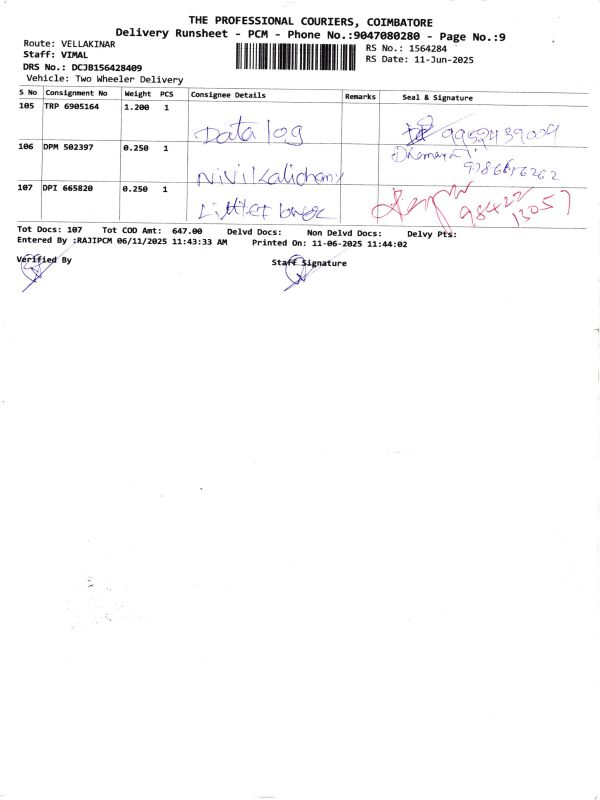 THE PROFESSIONAL COURIERS, COIMBATORE
Delivery Runsheet - PCM - Phone No.:9047080280 - Page No.:9
Route: VELLAKINAR
RS No.: 1564284
Staff: VIMAL
RS Date: 11-Jun-2025
DRS No.: DCJB156428409
Vehicle: Two Wheeler Delivery
S No Consignment No Weight PCS Consignee Details Remarks Seal & Signature
105 TRP 6905164 1.200 1 Data log 9952439009
106 DPM 502397 0.250 1
107 DPI 665820 0.250 1 98422 13057
Tot Docs: 107 Tot COD Amt: 647.00 Delvd Docs: Non Delvd Docs: Delvy Pts:
Entered By :RAJIPCM 06/11/2025 11:43:33 AM Printed On: 11-06-2025 11:44:02
Verified By Staff Signature